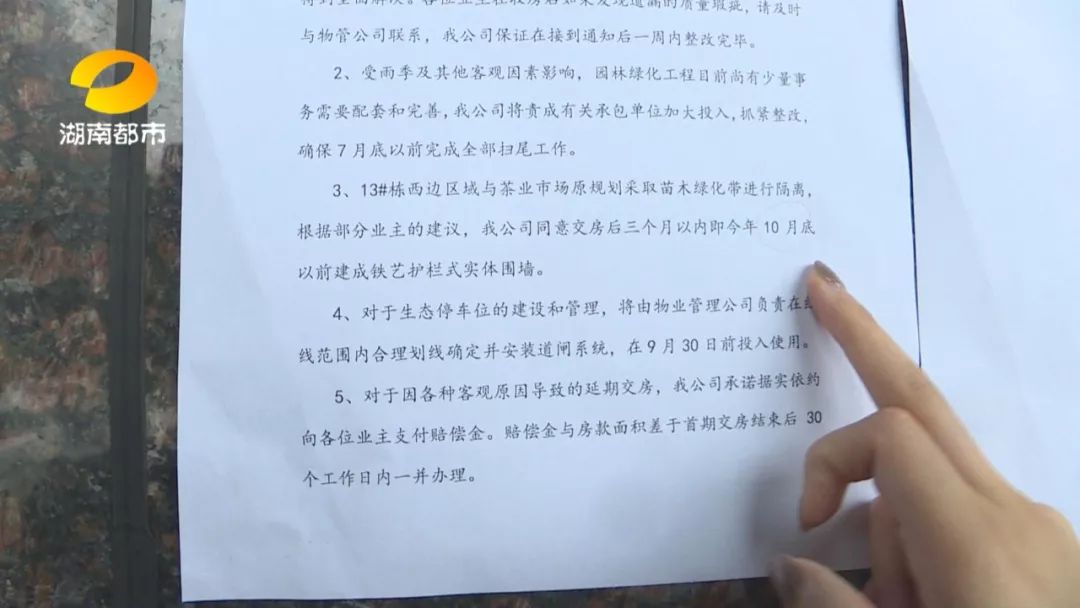 得到全面解决。各位业主在收房后如果发现遗漏的质量瑕疵，请及时
与物管公司联系，我公司保证在接到通知后一周内整改完毕。
2、受雨季及其他客观因素影响，园林绿化工程目前尚有少量事
务需要配套和完善，我公司将责成有关承包单位加大投入，抓紧整改，
确保7月底以前完成全部扫尾工作。
3、13#栋西边区域与茶业市场原规划采取苗木绿化带进行隔离，
根据部分业主的建议，我公司同意交房后三个月以内即今年10月底
以前建成铁艺护栏式实体围墙。
4、对于生态停车位的建设和管理，将由物业管理公司负责在红
线范围内合理划线确定并安装道闸系统，在9月30日前投入使用。
5、对于因各种客观原因导致的延期交房，我公司承诺据实依约
向各位业主支付赔偿金。赔偿金与房款面积差于首期交房结束后 30
个工作日内一并办理。
湖南都市